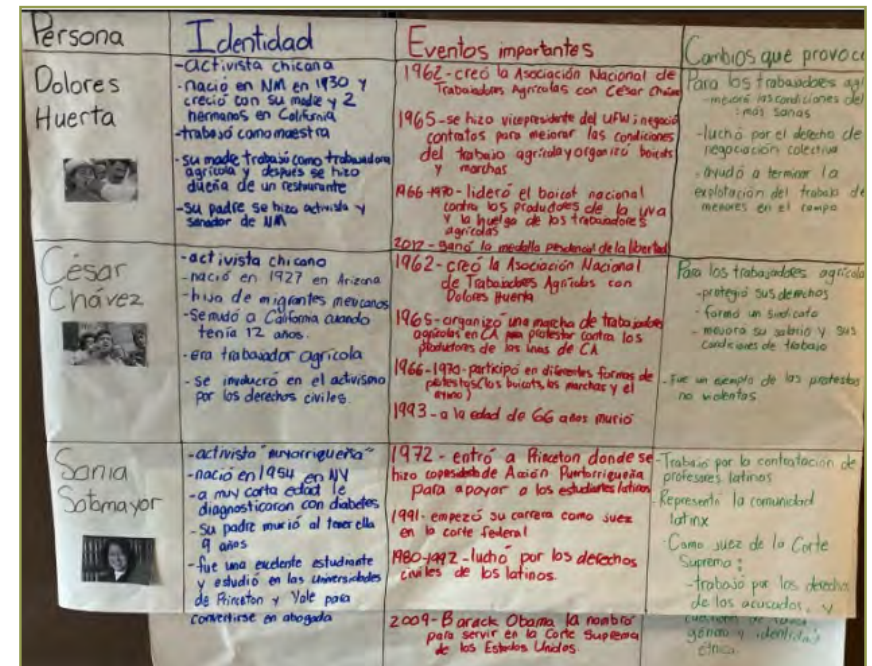 Persona
Identidad
Eventos importantes
Cambios que provoc
Dolores
Huerta
-activista chicana
-nació en NM en 1930 y
creció con su madre y 2
hermanos en California
-trabajó como maestra
-su madre trabajó como trabajadora
agrícola y después se hizo
dueña de un restaurante
-su padre se hizo activista y
senador de NM
1962-creó la Asociación Nacional de
Trabajadores Agrícolas con César Chávez
1965-se hizo vicepresidente del UFW; negoció
contratos para mejorar las condiciones
del trabajo agrícola y organizó boicots
y marchas
1966-1970-lideró el boicot nacional
contra los productores de la uva
y la huelga de los trabajadores
agrícolas
2012-ganó la medalla presidencial de la libertad
Para los trabajadores agr
-mejoró las condiciones del
más sanas
-luchó por el derecho de
negociación colectiva
-ayudó a terminar la
explotación del trabajo de
menores en el campo
César
Chávez
-activista chicano
-nació en 1927 en Arizona
-hijo de migrantes mexicanos
-Se mudó a California cuando
tenía 12 años.
-era trabajador agrícola
-se involucró en el activismo
por los derechos civiles.
1962-creó la Asociación Nacional
de Trabajadores Agrícolas con
Dolores Huerta
1965-organizó una marcha de trabajadores
agrícolas en CA para protestar contra los
productores de las uvas de CA
1966-1970-participó en diferentes formas de
protestas (los boicots, las marchas y el
ayuno)
1993-a la edad de 66 años murió
Para los trabajadores agrícola
-protegió sus derechos
-formó un sindicato
-mejoró su salario y sus
condiciones de trabajo
-Fue un ejemplo de las protestas
no violentas
Sonia
Sotomayor
-activista "nuyorriqueña"
-nació en 1954 en NY
-a muy corta edad le
diagnosticaron con diabetes
-su padre murió al tener ella
9 años
-fue una excelente estudiante
y estudió en las universidades
de Princeton y Yale para
convertirse en abogada
1972-entró a Princeton donde se
hizo copresidente de Acción Puertorriqueña
para apoyar a los estudiantes latinos
1991-empezó su carrera como juez
en la corte federal
1980-1992-luchó por los derechos
civiles de los latinos.
2009-Barack Obama la nombró
para servir en la Corte Suprema
de los Estados Unidos.
-Trabajó por la contratación de
profesores latinos
-Representó la comunidad
latinx
-Como juez de la Corte
Suprema:
-trabajó por los derechos
de los acusados, y
género y identidad
étnica.